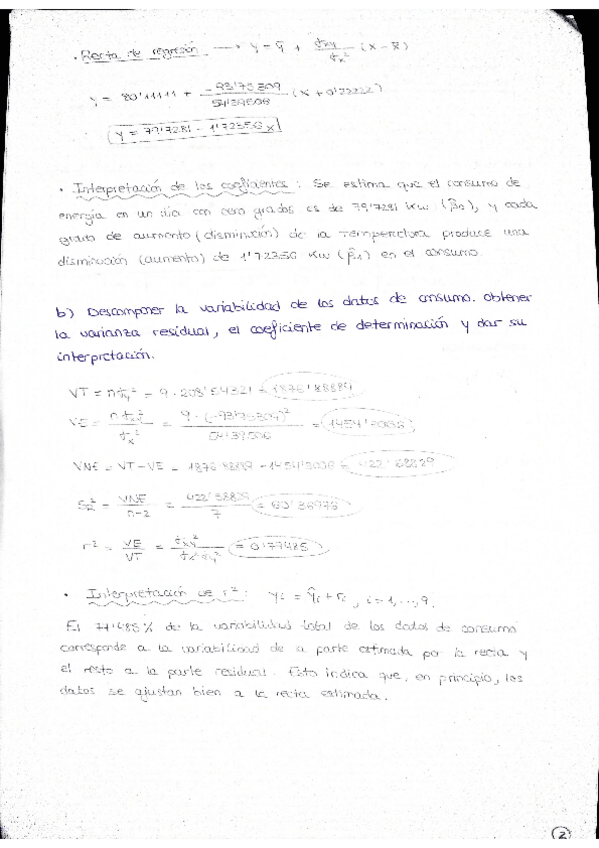 · Recta de regresión ⟶ y = ȳ + σxy/σx² (x - x̄)
y = 80'11111 + -93'75309/54'39506 (x + 0'22222)
y = 79'7281 - 1'72356 x
· Interpretación de los coeficientes: Se estima que el consumo de
energía en un día con cero grados es de 79'7281 Kw (β̂₀), y cada
grado de aumento (disminución) de la temperatura produce una
disminución (aumento) de 1'72356 Kw (β̂₁) en el consumo.
b) Descomponer la variabilidad de los datos de consumo. Obtener
la varianza residual, el coeficiente de determinación y dar su
interpretación.
VT = nσy² = 9 · 208'54321 = 1876'88889
VE = nσxy²/σx² = 9 · (-93'75309)²/54'39506 = 1454'3006
VNE = VT - VE = 1876'88889 - 1454'3006 = 422'58829
SR² = VNE/n-2 = 422'58829/7 = 60'36976
r² = VE/VT = σxy²/σx²σy² = 0'77485
· Interpretación de r²: yi = ŷi + ri, i = 1, ..., 9.
El 77'485% de la variabilidad total de los datos de consumo
corresponde a la variabilidad de a parte estimada por la recta y
el resto a la parte residual. Esto indica que, en principio, los
datos se ajustan bien a la recta estimada.
2